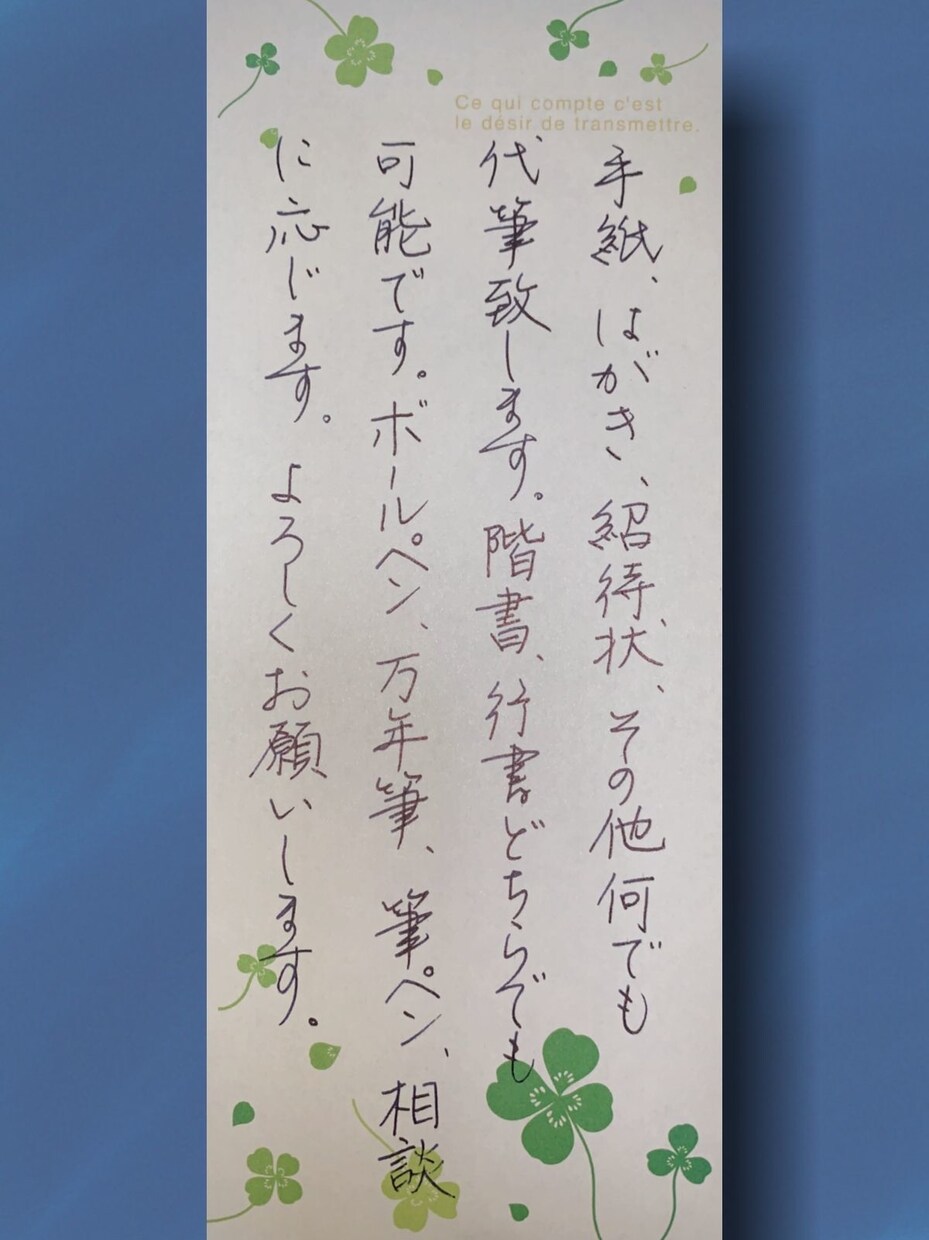 Ce qui compte c'est
le désir de transmettre.
手紙、はがき、紹待状、その他何でも
代筆致します。階書、行書どちらでも
可能です。ボールペン、万年筆、筆ペン、相談
に応じます。よろしくお願いします。